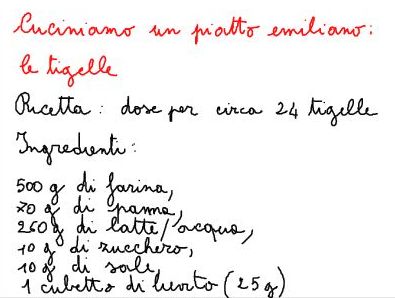 Cuciniamo un piatto emiliano:
le tigelle
Ricetta: dose per circa 24 tigelle
Ingredienti:
500 g di farina,
70 g di panna,
260 g di latte/acqua,
10 g di zucchero,
10 g di sale,
1 cubetto di lievito (25g)